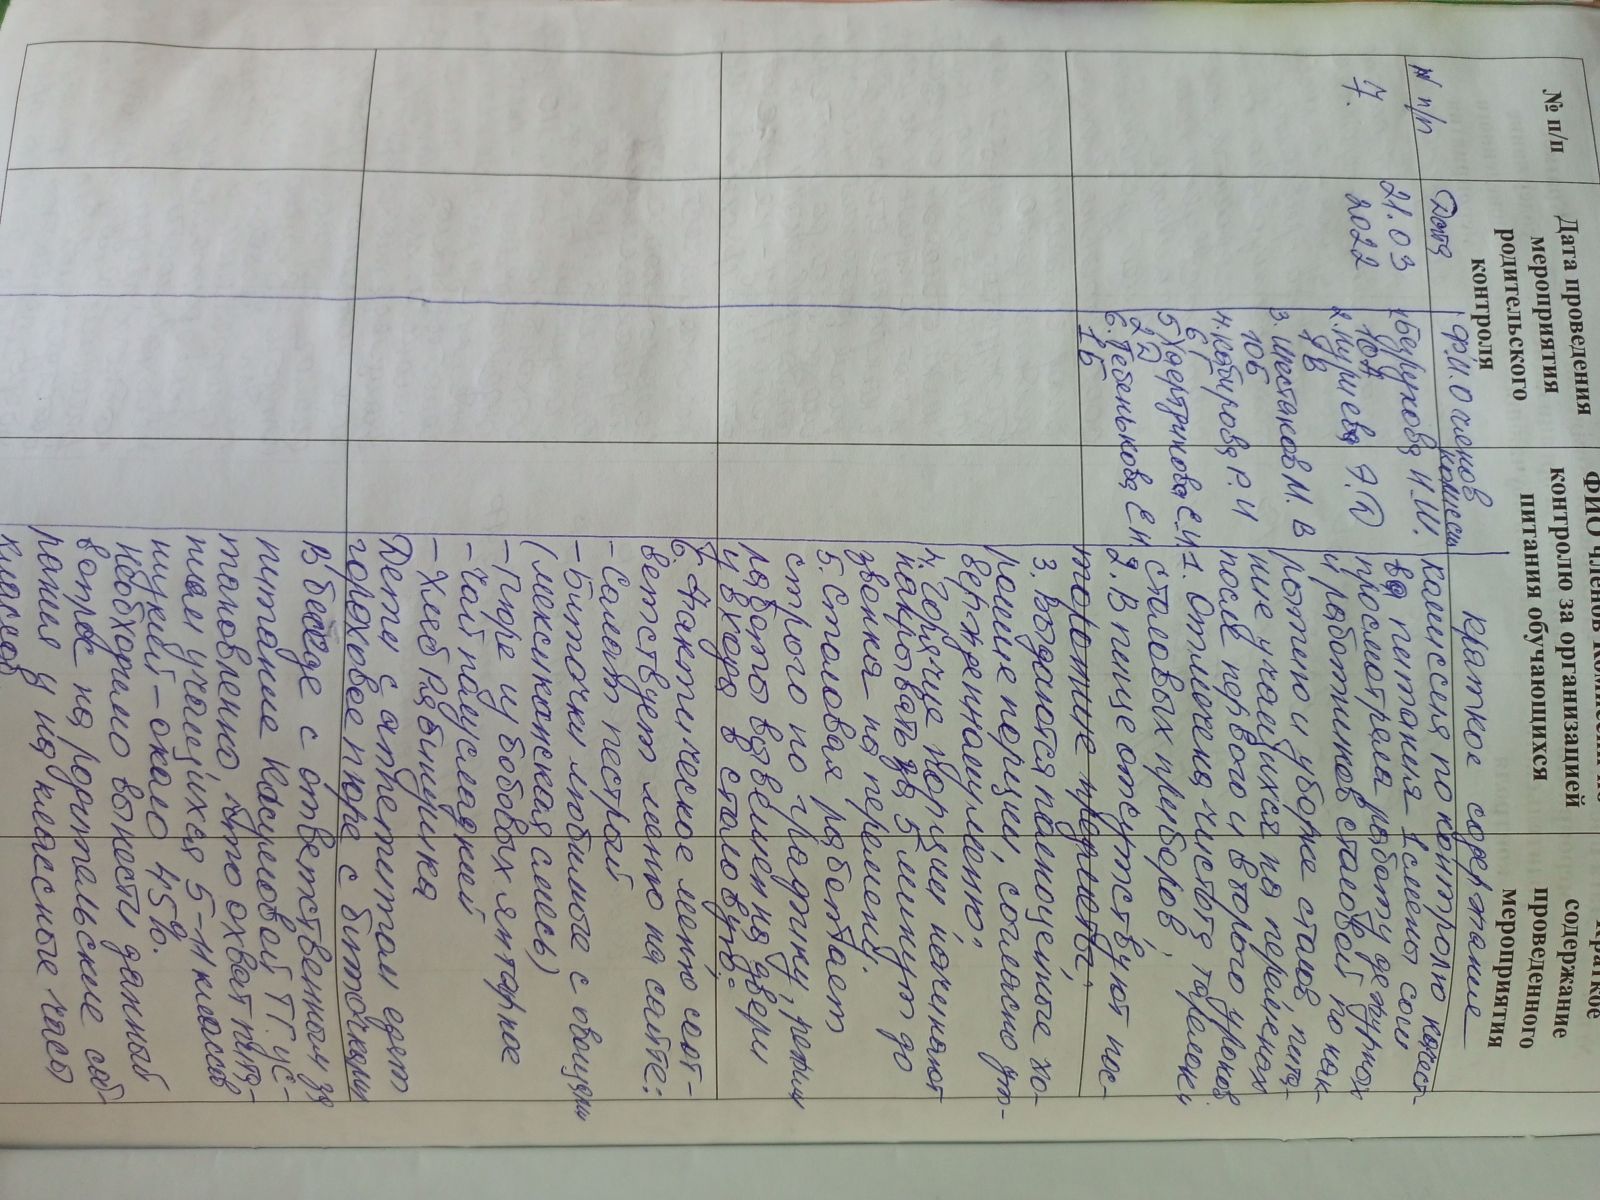 № п/п
Дата проведения
мероприятия
родительского
контроля
ФИО членов комиссии по
контролю за организацией
питания обучающихся
Краткое
содержание
проведенного
мероприятия
N п/п
Дата
Ф.И.О членов
комиссии
Краткое содержание
7.
21.03
2022
И.Ш.
10а
2.
7в
3. Шестаков М. В
10б
4. Кабирова Р. И
6г
5
2а
6. Гребенькова Е Н
1б
Комиссия по контролю качест-
ва питания 1 смены сош
просмотрела работу дежурных
и работников столовой по нак-
рытию и уборке столов, пита-
ние учащихся на переменах
после первого и второго уроков
1. Отмечена чистота тарелок и
столовых приборов;
2. В пище отсутствуют пос-
торонние предметы;
3. Подаются полноценные хо-
рошие порции, согласно ут-
вержденному меню;
4. Горячие порции начинают
накрывать за 5 минут до
звонка на перемену.
5. Столовая работает
строго по графику, режим
работы вывешен на двери
у входа в столовую;
6. Фактическое меню соот-
ветствует меню на сайте:
- Салат пестрый
- Биточки любимые с овощами
(мексиканская смесь)
- Пюре из бобовых янтарное
- Чай полусладкий
- Хлеб пшеничный
Дети с аппетитом едят
гороховое пюре с биточками
В беседе с ответственным за
питание Касумовой Т.Г. ус-
тановлено, что охват пита-
нием учащихся 5-11 классов
низкий - около 45%.
Необходимо вынести данный
вопрос на родительские соб-
рания и на классные часы
классов.